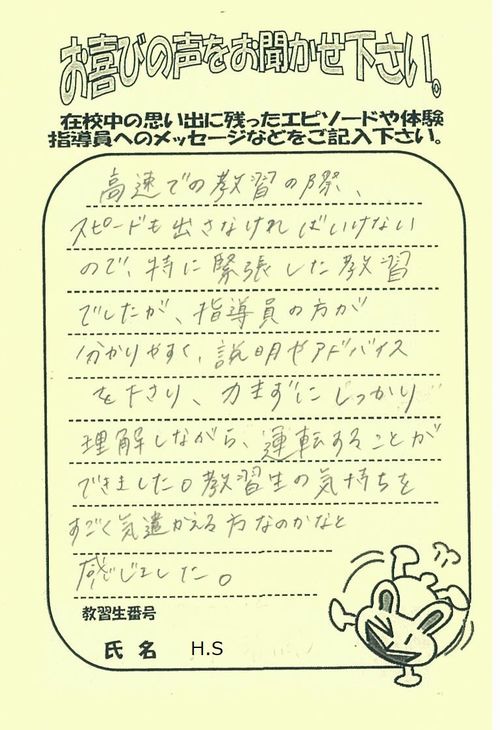 お喜びの声をお聞かせ下さい。
在校中の思い出に残ったエピソードや体験
指導員へのメッセージなどをご記入下さい。
高速での教習の際、
スピードも出さなければいけない
ので、特に緊張した教習
でしたが、指導員の方が
分かりやすく、説明やアドバイス
を下さり、力まずにしっかり
理解しながら、運転することが
できました。教習生の気持ちを
すごく気遣かえる方なのかなと
感じました。
教習生番号
氏名 H.S